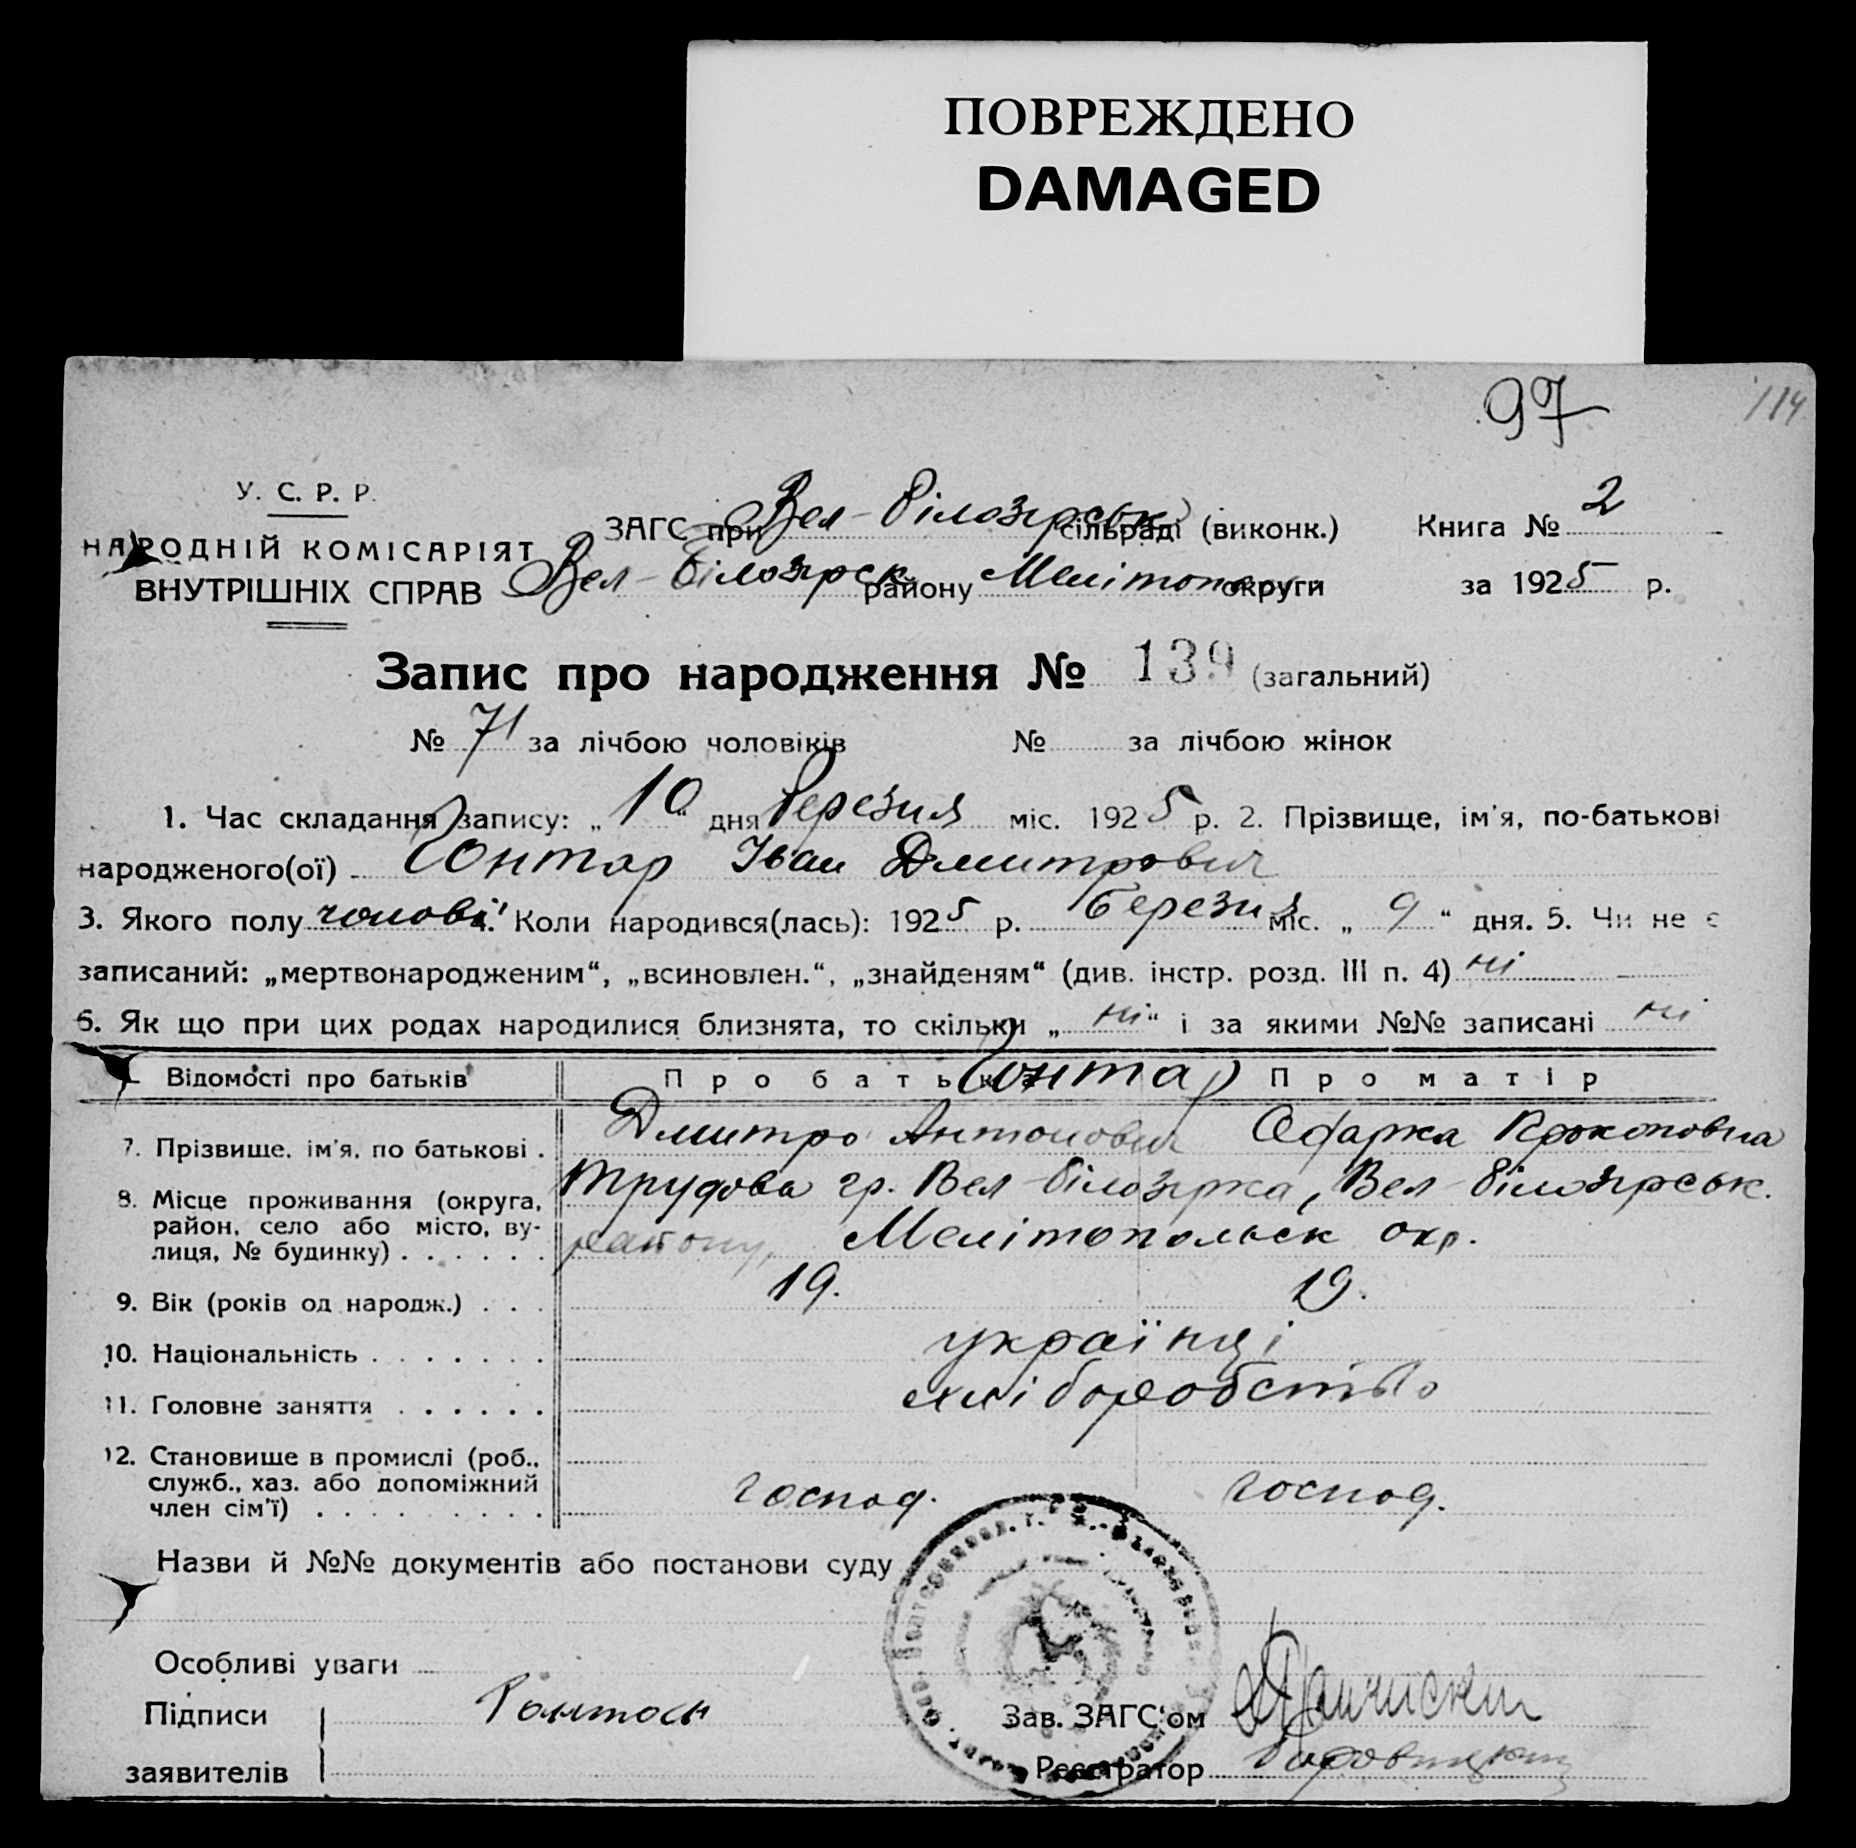 ПОВРЕЖДЕНО
DAMAGED
97
114
У. С. Р. Р.
НАРОДНІЙ КОМІСАРІЯТ
ВНУТРІШНІХ СПРАВ
ЗАГС при Вел-Білозірськ сільраді (виконк.) Книга № 2
Вел-Білозірск району Мелітопольск округи за 1925 р.
Запис про народження № 139 (загальний)
№ 71 за лічбою чоловіків № за лічбою жінок
1. Час складання запису: „10“ дня Березня міс. 1925 р. 2. Прізвище, ім'я, по-батькові
народженого(ої) Гонтар Іван Дмитрович
3. Якого полу чолові. Коли народився(лась): 1925 р. Березня міс. „9“ дня. 5. Чи не є
записаний: „мертвонародженим“, „всиновлен.“, „знайденям“ (див. інстр. розд. III п. 4) ні
6. Як що при цих родах народилися близнята, то скільки „ні“ і за якими №№ записані ні
Відомості про батьків Про батька Гонтар Про матір
7. Прізвище, ім'я, по батькові . Дмитро Антонович Офарка Прокоповна
8. Місце проживання (округа, район, село або місто, вулиця, № будинку) . . . . . .
Трудова гр. Вел-Білозірка, Вел-Білозірськ.
району, Мелітопольск окр.
9. Вік (років од народж.) . . . 19. 19.
10. Національність . . . . . . . українці
11. Головне заняття . . . . . . хліборобство
12. Становище в промислі (роб., служб., хаз. або допоміжний член сім'ї) . . . . . . . . . господ. господ.
Назви й №№ документів або постанови суду
Особливі уваги
Підписи
заявителів
Зав. ЗАГС'ом
Реєстратор